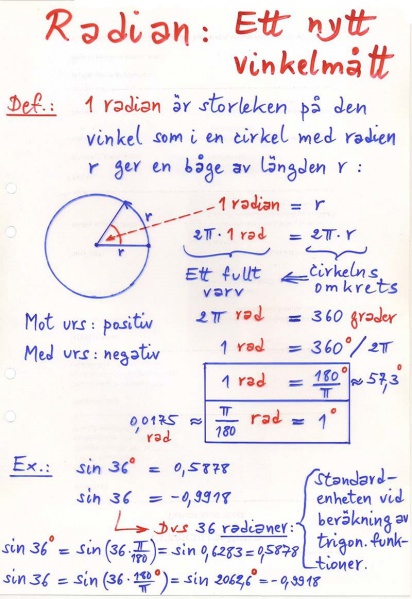 Radian: Ett nytt
vinkelmått
Def.: 1 radian är storleken på den
vinkel som i en cirkel med radien
r ger en båge av längden r:
r
r
1 radian = r
2π · 1 rad = 2π · r
Ett fullt varv ⇐ cirkelns omkrets
Mot urs: positiv
Med urs: negativ
2π rad = 360 grader
1 rad = 360°/2π
1 rad = 180°/π ≈ 57,3°
0,0175 rad ≈ π/180 rad = 1°
Ex.: sin 36° = 0,5878
sin 36 = -0,9918
→ Dvs 36 radianer:
Standard-
enheten vid
beräkning av
trigon. funk-
tioner.
sin 36° = sin (36·π/180) = sin 0,6283 = 0,5878
sin 36 = sin (36·180°/π) = sin 2062,6° = -0,9918